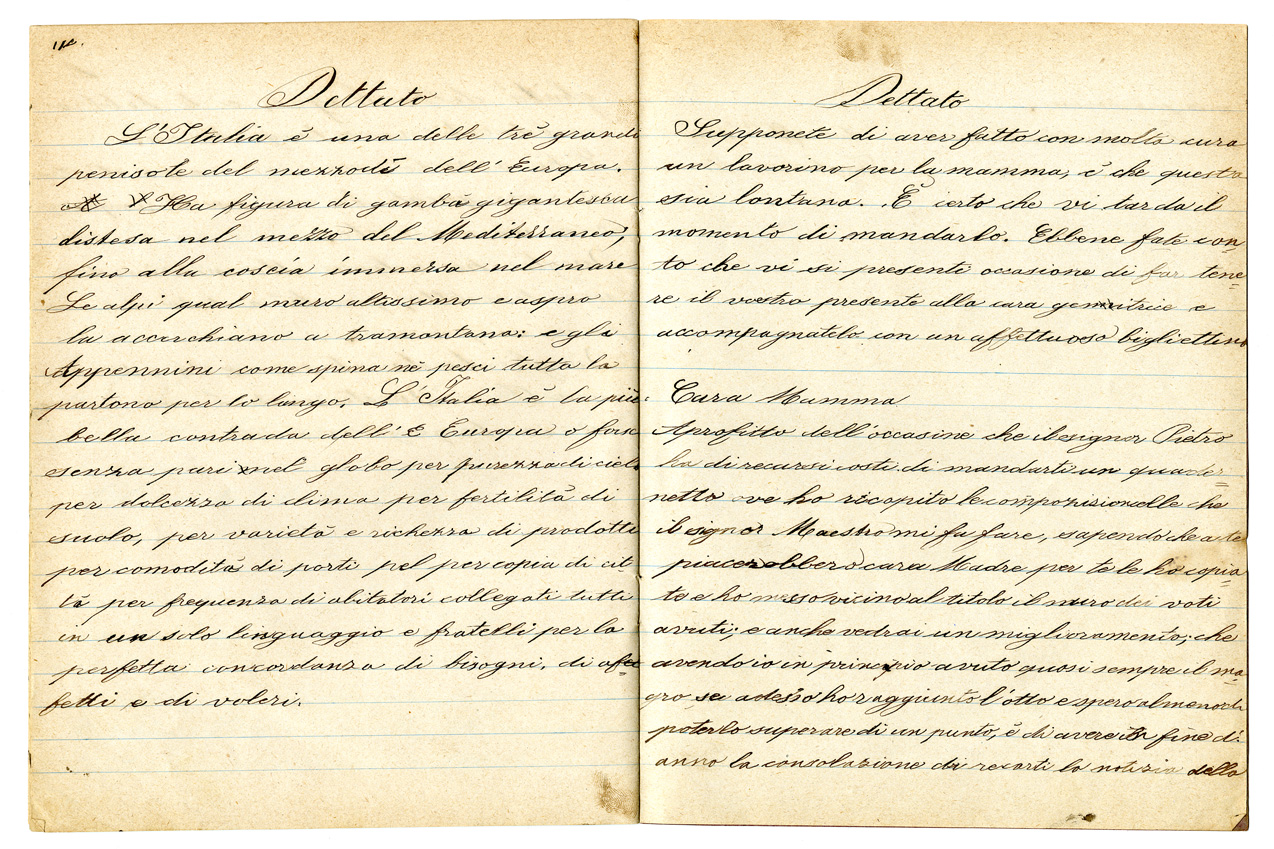 Dettato
L'Italia è una delle tre grandi
penisole del mezzodì dell'Europa.
Ha figura di gamba gigantesca
distesa nel mezzo del Mediterraneo,
fino alla coscia immersa nel mare
Le alpi qual muro altissimo e aspro
la accerchiano a tramontana: e gli
Appennini come spina ne pesci tutta la
partono per lo lungo. L'Italia è la più
bella contrada dell' Europa o forse
senza pari nel globo per purezza di cielo
per dolcezza di clima per fertilità di
suolo, per varietà e richezza di prodotti
per comodità di porti pel per copia di cit-
tà per frequenza di abitatori collegati tutti
in un solo linguaggio e fratelli per la
perfetta concordanza di bisogni, di af=
fetti e di voleri.
Dettato
Supponete di aver fatto con molta cura
un lavorino per la mamma, è che questa
sia lontana. È certo che vi tarda il
momento di mandarlo. Ebbene fate con=
to che vi si presenti occasione di far tene=
re il vostro presente alla cara genitrice e
accompagnatelo con un affettuoso bigliettino
Cara Mamma
Aprofitto dell'occasine che il signor Pietro
ha di recarsi costi di mandarti un quader=
netto ove ho ricopito le composizioncelle che
il signor Maestro mi fa fare, sapendo che a te
piacerebbero cara Madre per te le ho copia=
te e ho messo vicino al titolo il nuro dei voti
avuti; e anche vedrai un miglioramento; che
avendo io in principio avuto quasi sempre il ma=
gro sei adesso ho raggiunto l'otto e spero almeno di
poterlo superare di un punto, è di avere in fine d'
anno la consolazione di recarti la notizia della